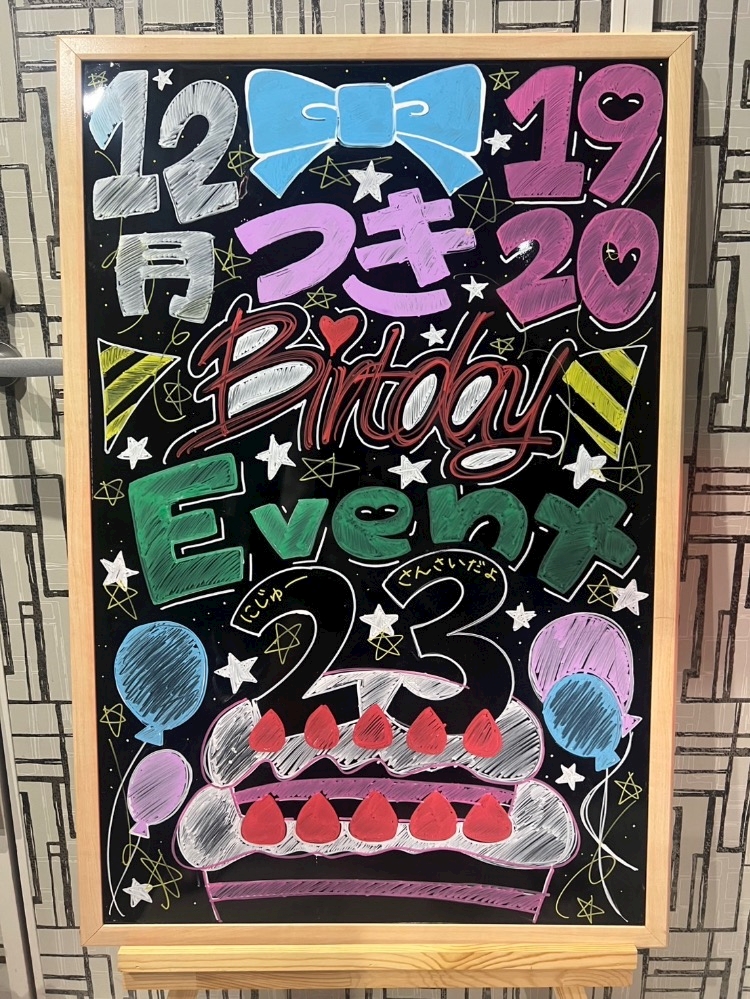 12月
19
20
つき
Birtday
Event
にじゅー
さんさいだよ
23